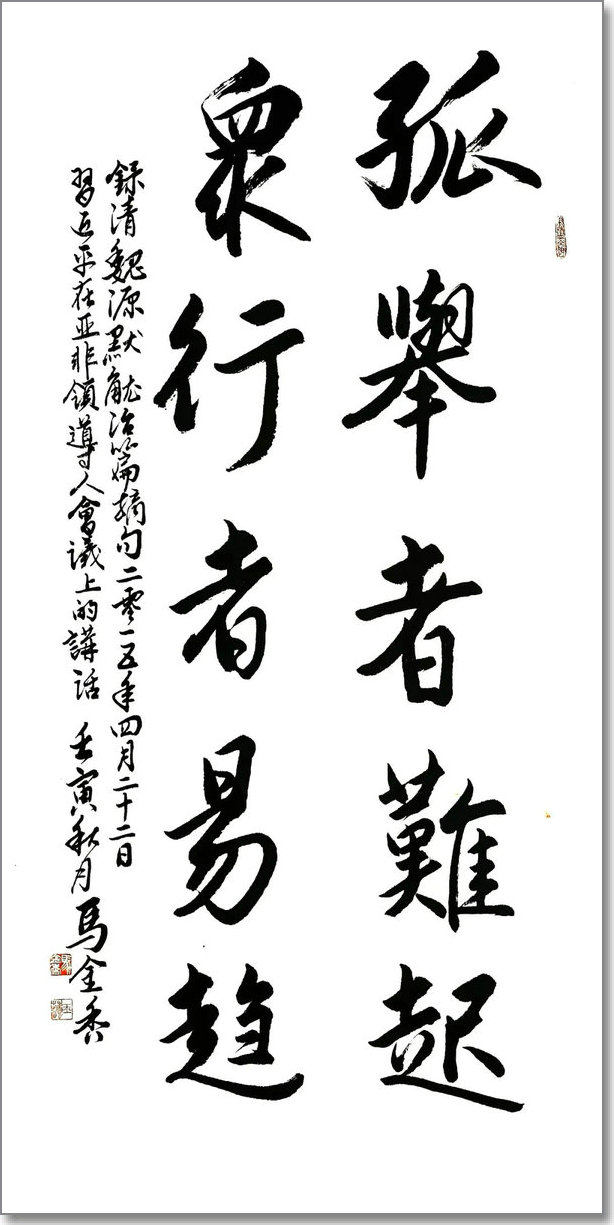 孤舉者難起
衆行者易趋
録清魏源默觚治篇摘句二零一五年四月二十二日
習近平在亚非領導人會議上的講話 壬寅秋月 馬金香